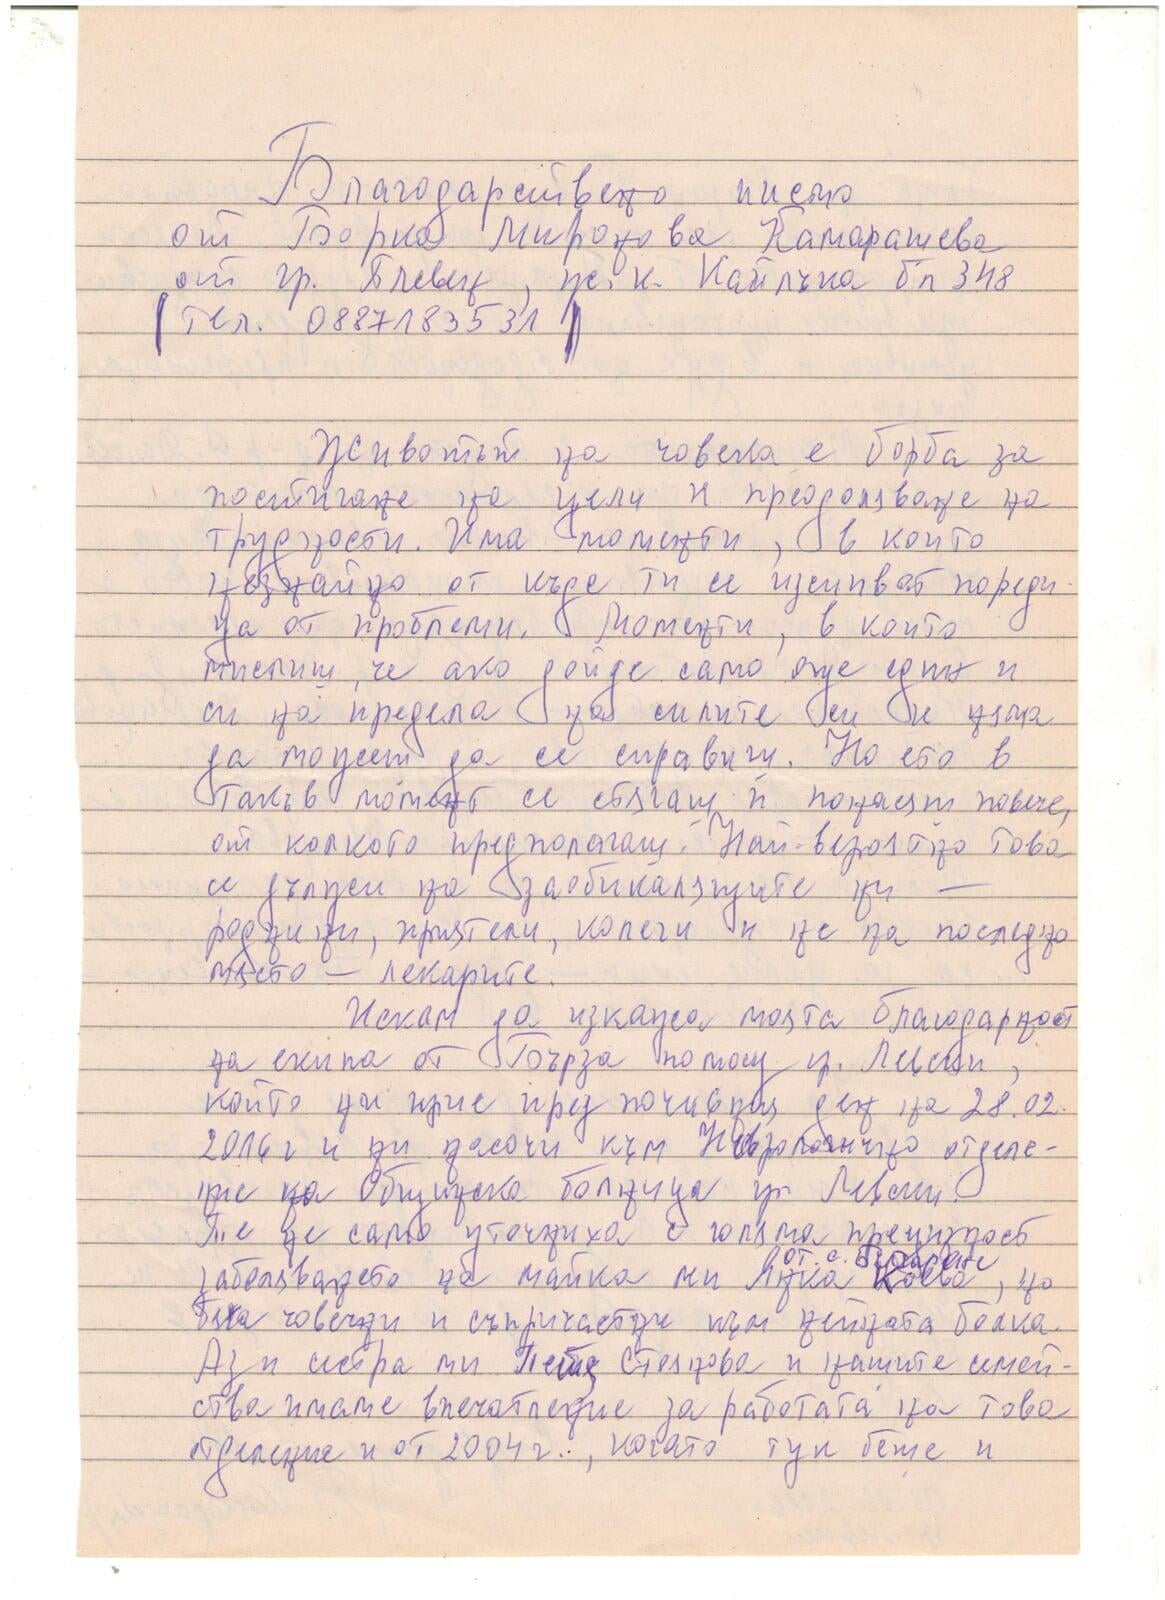 Благодарствено писмо
от Борка Миронова Камарашева
от гр. Плевен, ж.к. Кайлъка бл 348
тел. 0887183531
Животът на човека е борба за
постигане на цели и преодоляване на
трудности. Има моменти, в които
незнайно от къде ти се изсипват пореди-
ца от проблеми. Моменти, в които
мислиш, че ако дойде само още един и
си на предела на силите си и няма
да можеш да се справиш. Но ето в
такъв момент се стягаш и понасяш повече,
от колкото предполагаш. Най-вероятно това
се дължи на заобикалящите ни —
роднини, приятели, колеги и не на последно
място — лекарите.
Искам да изкажа моята благодарност
на екипа от Бърза помощ гр. Левски,
който ни прие през почивния ден на 28.02.
2016 г и ни насочи към Неврологично отделе-
ние на Общинска болница гр. Левски.
Те не само уточниха с голяма прецизност
от с.
заболяването на майка ми Анка Коева, но
бяха човечни и съпричастни към нейната болка.
Аз и сестра ми Стоянова и нашите семей-
ства имаме впечатление за работата на това
отделение и от 2004 г., когато тук беше и